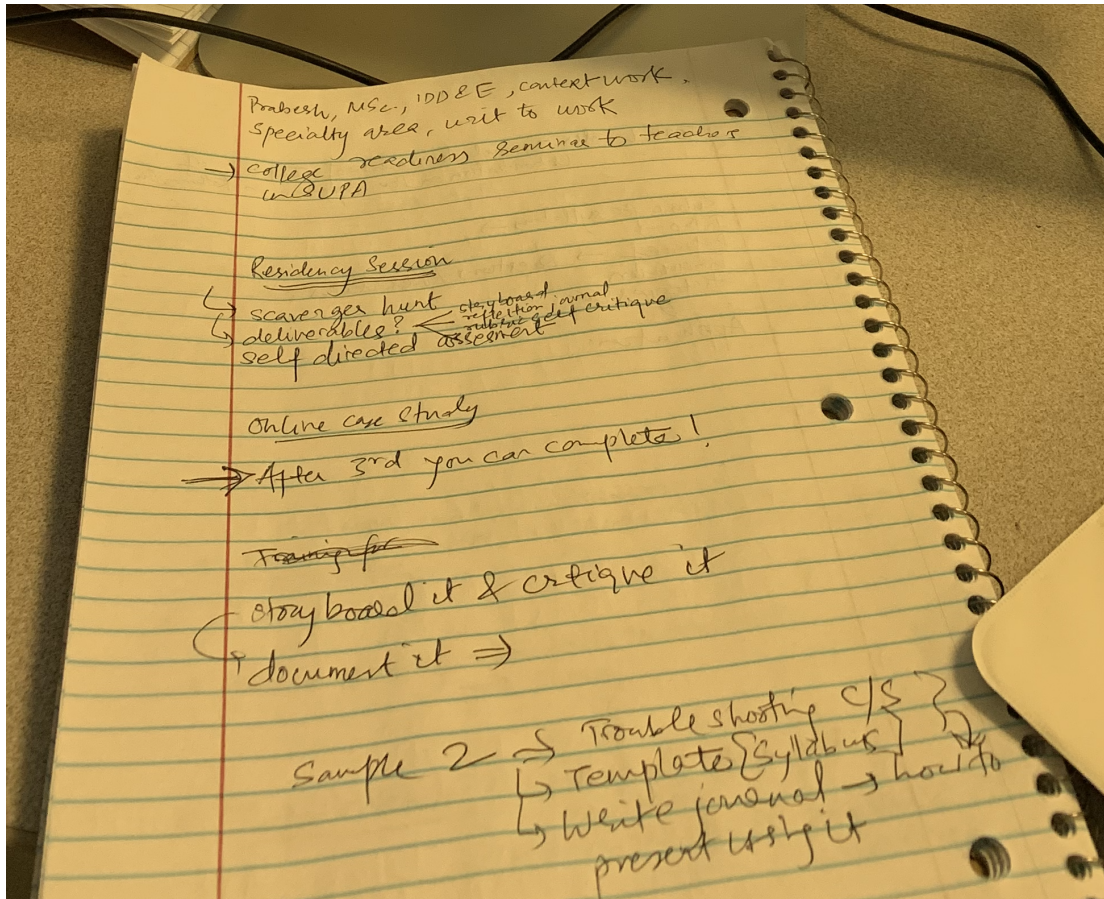 Prabesh, MSc., IDD&E, context work.
Specialty area, unit to work
→ college readiness seminar to teachers
in SUPA
Residency Session
↳ scavenger hunt
↳ deliverables? < storyboard
reflection journal
rubric self critique
self directed assesment
Online case study
⇒ After 3rd you can complete!
Training for
storyboard it & critique it
document it ⇒
Sample 2 → Trouble shooting C/S
↳ Template {Syllabus}
↳ Write journal → how to
present using it